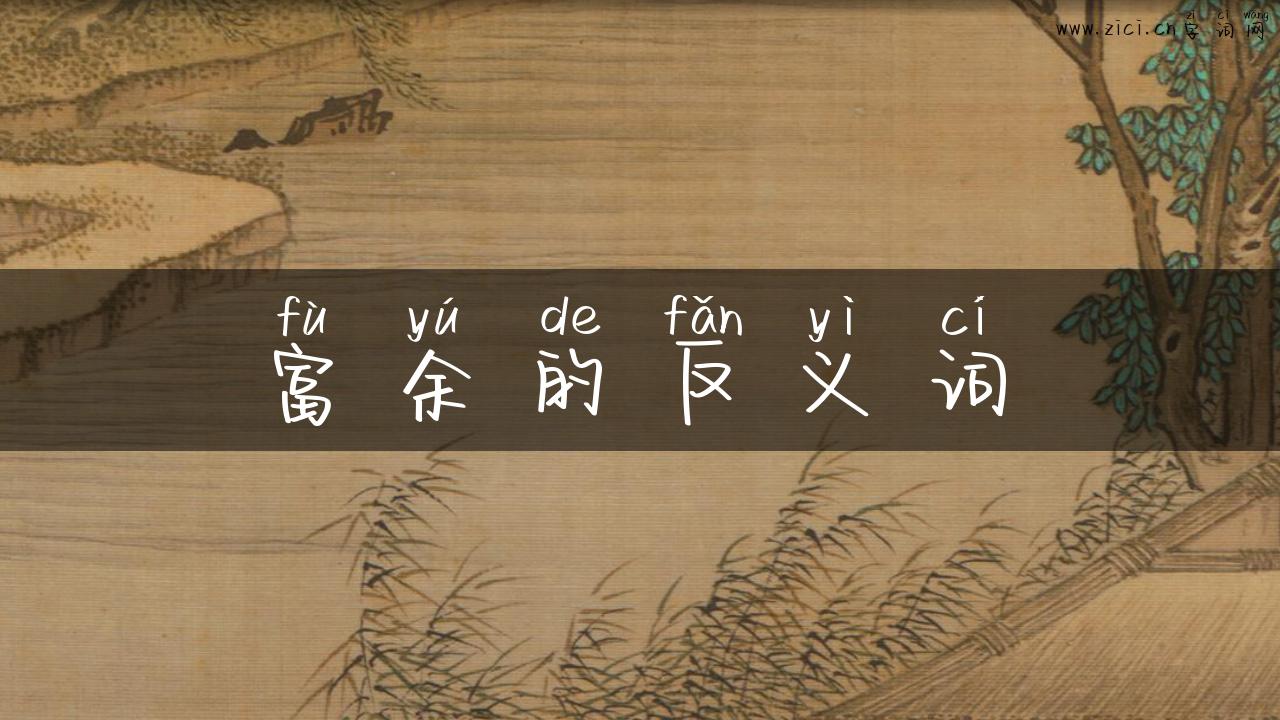 zì cí wǎng
www.zici.cn字词网
fù yú de fǎn yì cí
富余的反义词